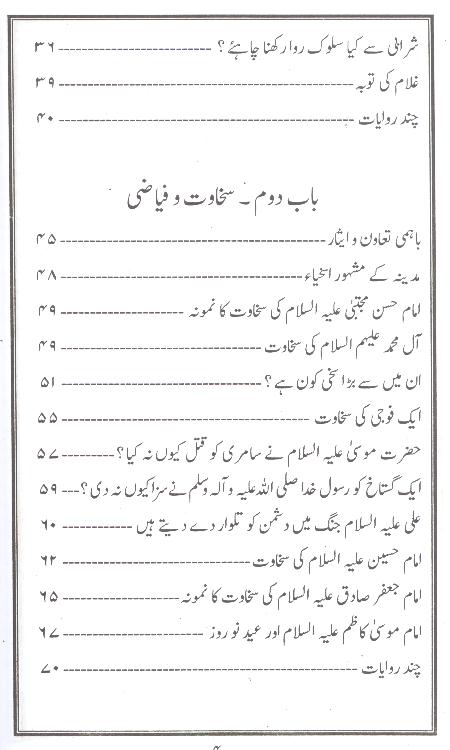 شرابی سے کیا سلوک روا رکھنا چاہئے؟ ---------------------- ۳۶
غلام کی توبہ ---------------------- ۳۹
چند روایات ---------------------- ۴۰
باب دوم ۔ سخاوت و فیاضی
باہمی تعاون و ایثار ---------------------- ۴۵
مدینہ کے مشہور اسخیاء ---------------------- ۴۸
امام حسن مجتبیٰ علیہ السلام کی سخاوت کا نمونہ ---------------------- ۴۹
آل محمد علیہم السلام کی سخاوت ---------------------- ۴۹
ان میں سے بڑا سخی کون ہے؟ ---------------------- ۵۱
ایک فوجی کی سخاوت ---------------------- ۵۵
حضرت موسیٰ علیہ السلام نے سامری کو قتل کیوں نہ کیا؟ -------- ۵۷
ایک گستاخ کو رسول خدا صلی اللہ علیہ و آلہ وسلم نے سزا کیوں نہ دی؟ --- ۵۹
علی علیہ السلام جنگ میں دشمن کو تلوار دے دیتے ہیں ----------- ۶۰
امام حسین علیہ السلام کی سخاوت ---------------------- ۶۲
امام جعفر صادق علیہ السلام کی سخاوت کا نمونہ ---------------------- ۶۵
امام موسیٰ کاظم علیہ السلام اور عید نو روز ---------------------- ۶۷
چند روایات ---------------------- ۷۰
۴